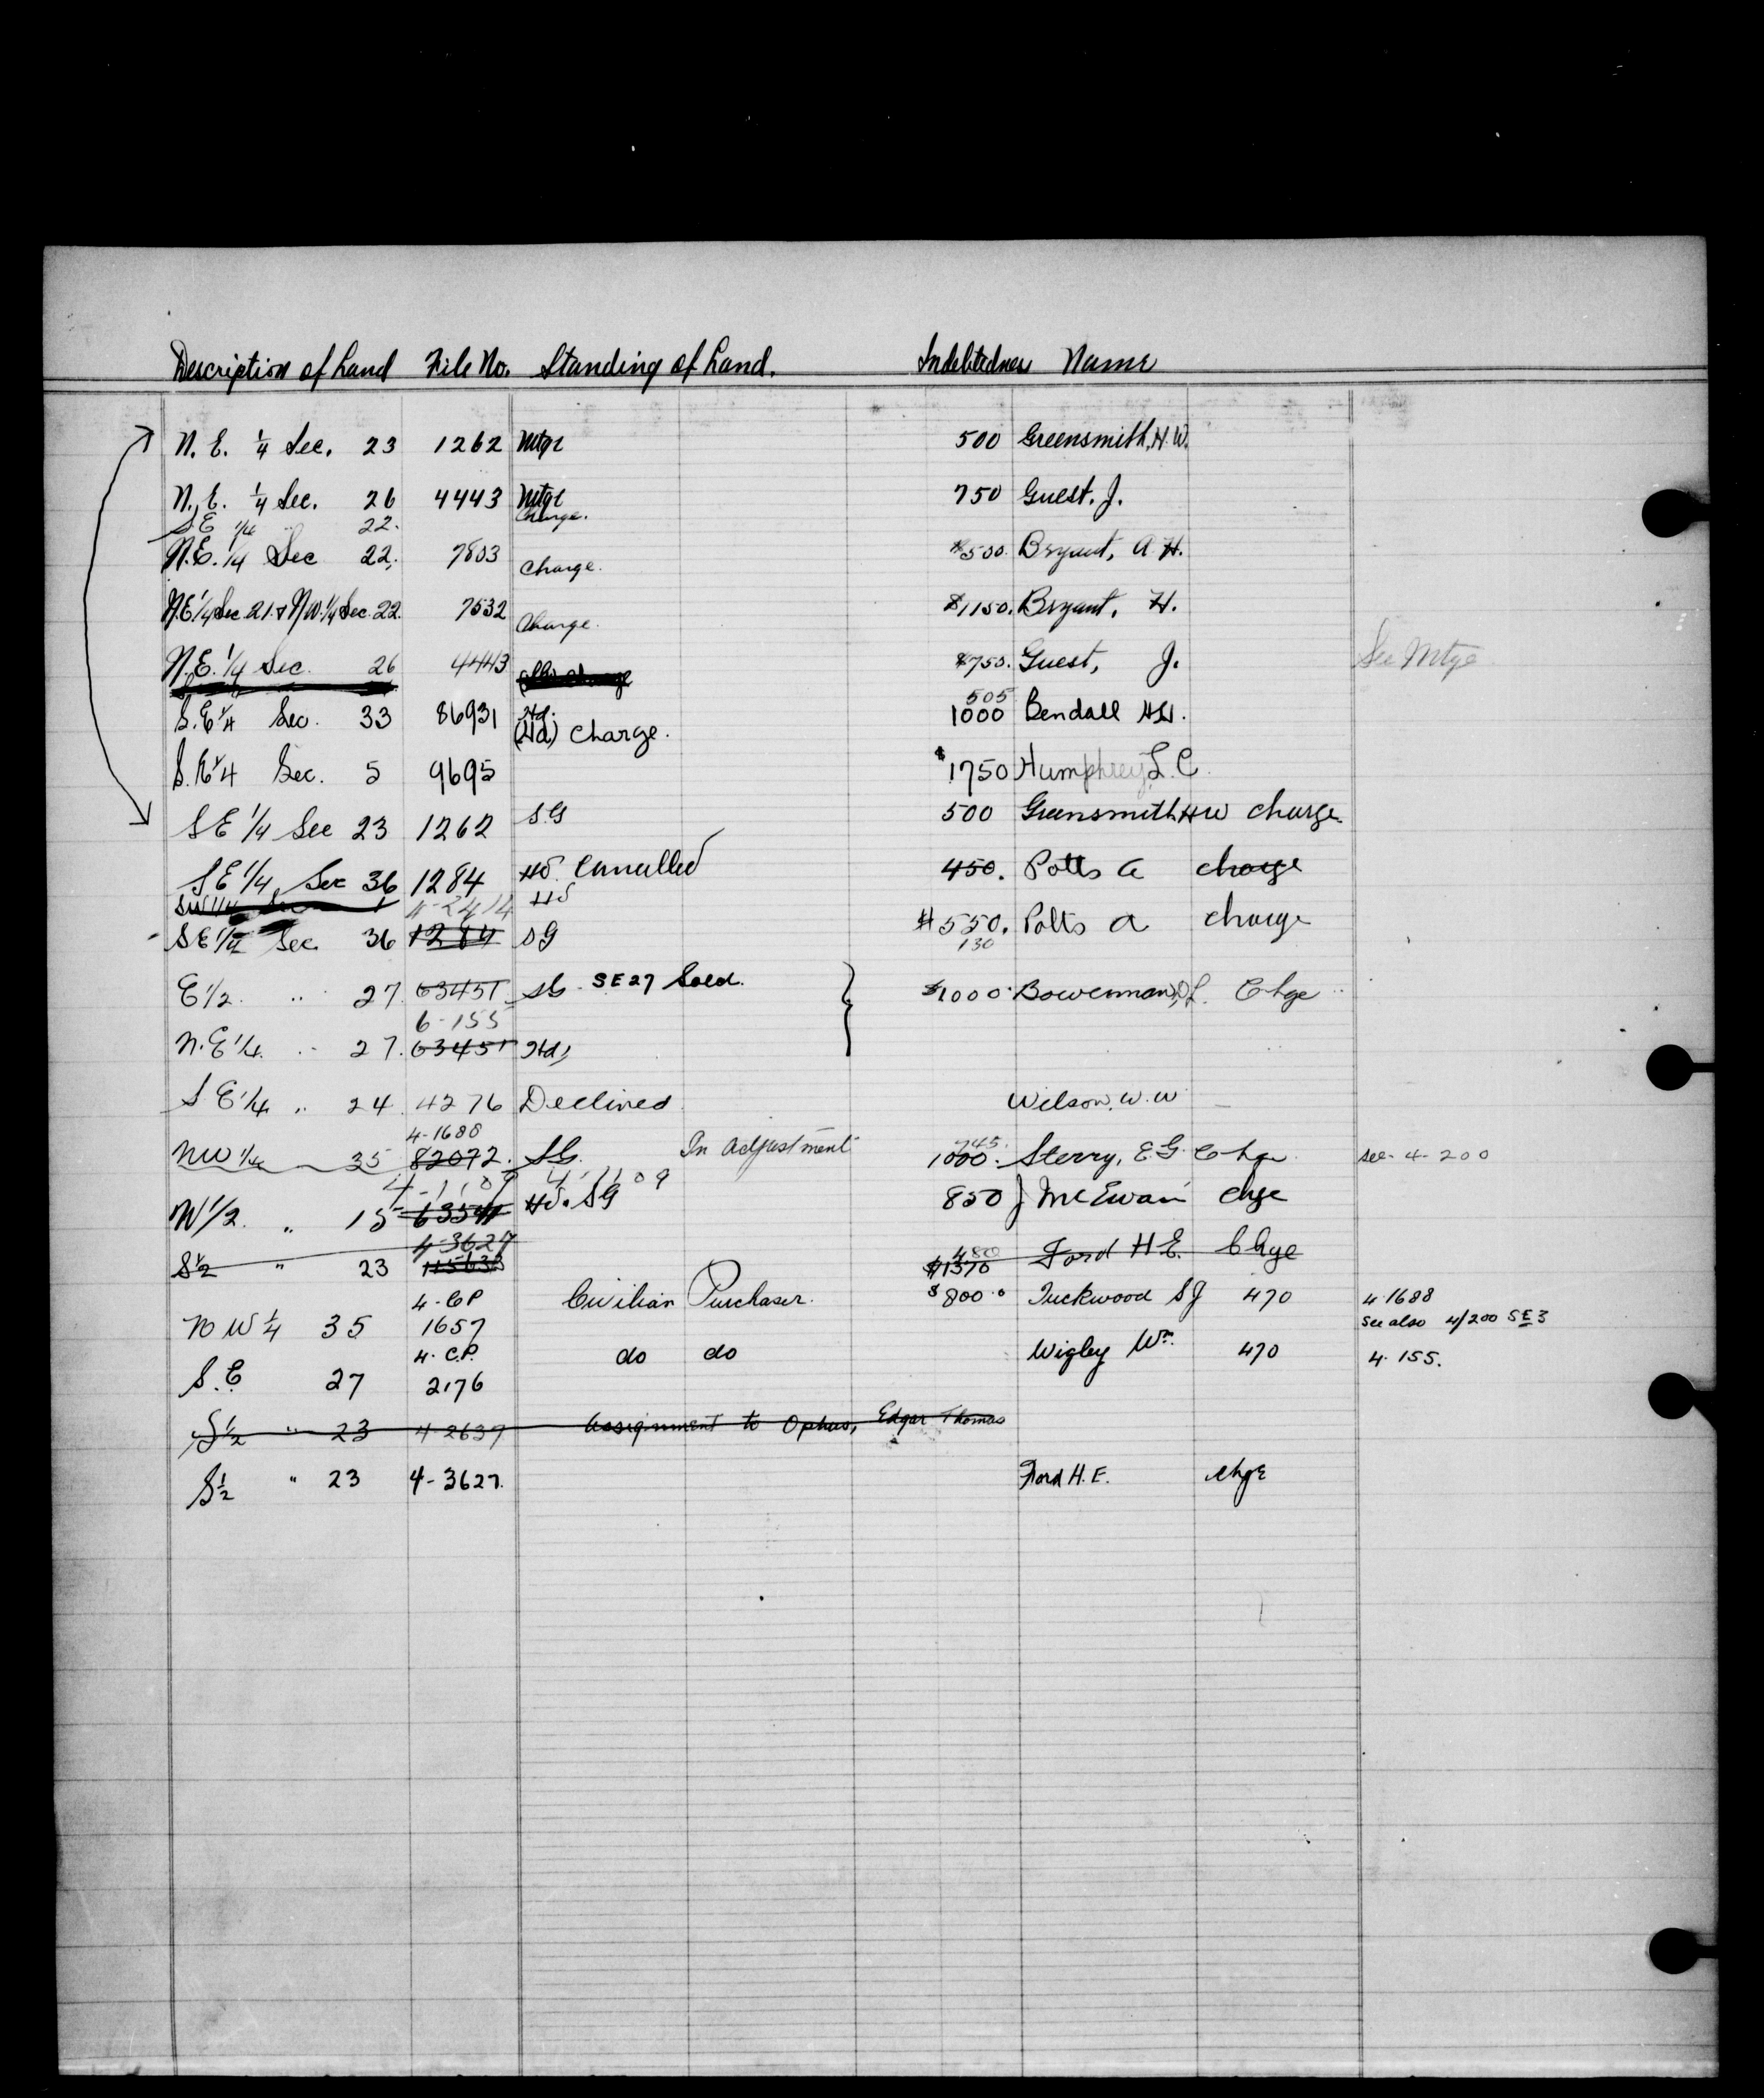 Description of Land File No. Standing of Land. Indebtednes Name
N. E. 1/4 Sec. 23 1262 Mtge 500 Greensmith, H. W.
N. E. 1/4 Sec. 26 4443 Mtge 750 Guest. J.
S.E 1/4 " 22. Charge.
N.E. 1/4 Sec 22. 7803 Charge. $500. Bryant, A. H.
N.E 1/4 Sec. 21. & N.W. 1/4 Sec. 22. 7532 Charge. $1150. Bryant, H.
N.E. 1/4 Sec. 26 4443 $750. Guest, J. See Mtge
505
S.E 1/4 Sec. 33 86931 Hd. (Hd) Charge. 1000 Bendall
S.E 1/4 Sec. 5 9695 $1750 Humphrey, L. C.
S E 1/4 Sec 23 1262 S.G 500 Greensmith HW charge.
S E 1/4 Sec 36 1284 Hd. Cancelled 450. Potts A charge
4-2414 Hd
S E 1/4 Sec. 36 1284 SG $550. Potts A charge
130
E 1/2. " 27. 63451 SG - SE 27 Sold. $1000. Bowerman, L. Chge
6-155
N.E 1/4. " 27. 63451 Hd,
S E 1/4 " 24. 4276 Declined Wilson, W. W
4-1688 745.
NW 1/4 " 35 82072. SG. In adjustment 1000. Sterry, E G. Chge see. 4-200
4-1109 4-1109
W 1/2. " 15 Hd. SG 850 J McEwan chge
4-3627 480
S 1/2 " 23 $1370 Ford H E. Chge
4-CP Civilian Purchaser. $800.0 Tuckwood S J 470 4.1688
N W 1/4 35 1657 See also 4/200 SE 3
4. C.P. do do Wigley Wm. 470 4.155.
S.E 27 2176
S 1/2 " 23 4-2637 Assignment to Edgar Thomas
S 1/2 " 23 4-3627. Ford H. E. chge